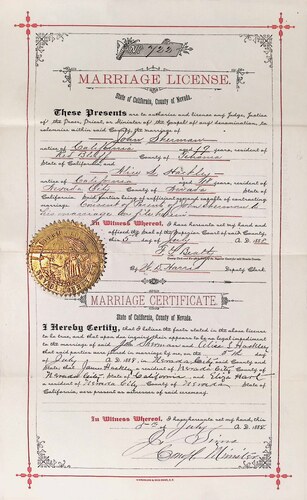 No. 722
MARRIAGE LICENSE.
State of California, County of Nevada.
These Presents are to authorize and license any Judge, Justice
of the Peace, Priest, or Minister of the Gospel of any denomination, to
solemnize within said County the marriage of
John Sherman
native of California aged 19 years, resident of
Red Bluff County of Tehama
State of California and
native of California aged years, resident of
Nevada City County of Nevada
State of California. Said parties being of sufficient age and capable of contracting
marriage. Consent of of John Sherman to
his marriage on file herein
In Witness Whereof, I have hereunto set my hand and
affixed the Seal of the Superior Court of said County,
this 5 day of July A.D. 188
Deputy Clerk.
MARRIAGE CERTIFICATE.
State of California, County of Nevada.
I Hereby Certify, that I believe the facts stated in the above license
to be true, and that upon due inquiry there appears to be no legal impediment
to the marriage of said John Sherman and
that said parties were joined in marriage by me, on the 5th day
of July A.D. 188 in Nevada City said County and
State; that a resident of Nevada City County of
Nevada State of California, and
a resident of Nevada City County of Nevada State of
California, were present as witnesses of said ceremony.
In Witness Whereof, I have hereunto set my hand, this
day of July A.D. 188
J. Sims
Minister